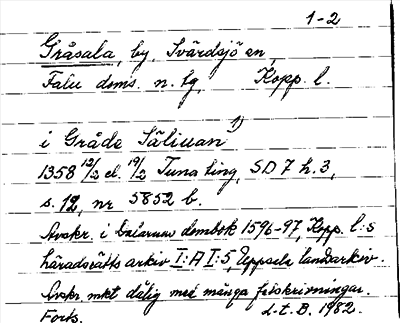 1-2
Gråsala, by, Svärdsjö sn,
Falu doms. n. tg, Kopp. l.
i Gråde Säliuan 1)
1358 12/2 el. 19/2 Tuna ting, SD 7 h. 3,
s. 12, nr 5852 b.
Avskr. i Dalarnas dombok 1596-97, Kopp. l:s
häradsrätts arkiv I:A I:5, Uppsala landsarkiv.
Avskr. mkt dålig med många felskrivningar.
Forts. L-t. B. 1982.